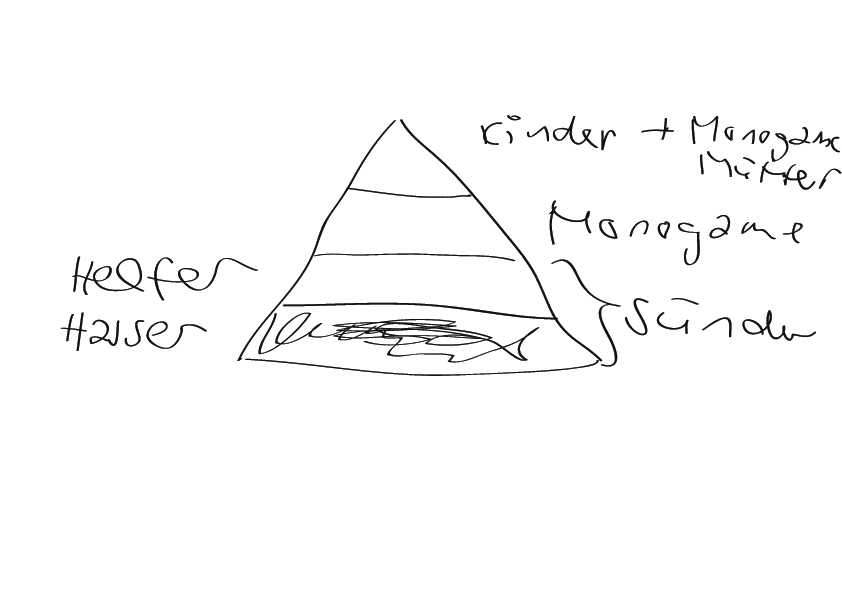 Kinder + Monogame
Mütter
Monogame
Helfer
Hasser
Sünder